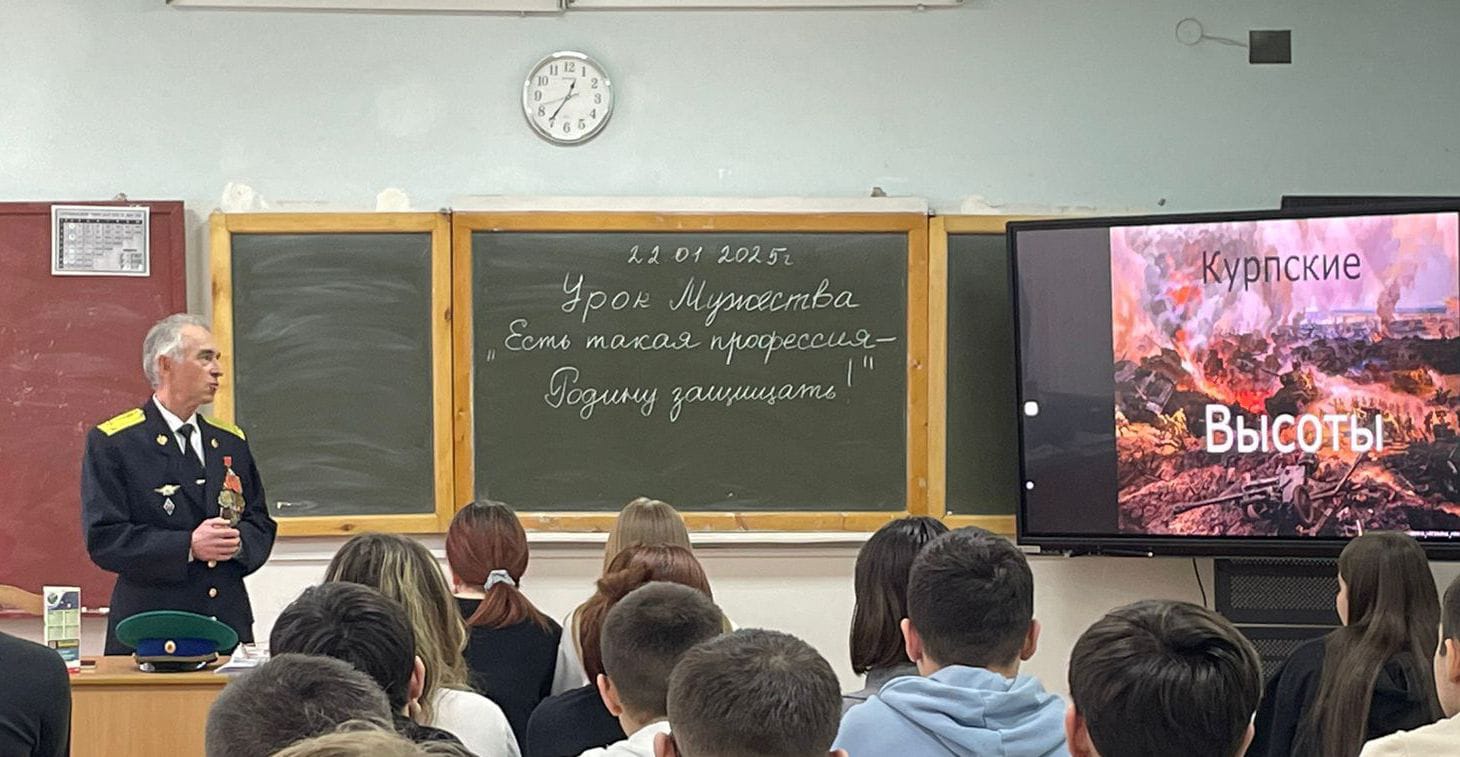 12
1
2
3
4
5
6
7
8
9
10
11
22 01 2025г
Урок Мужества
"Есть такая профессия—
Родину защищать!"
Курпские
Высоты